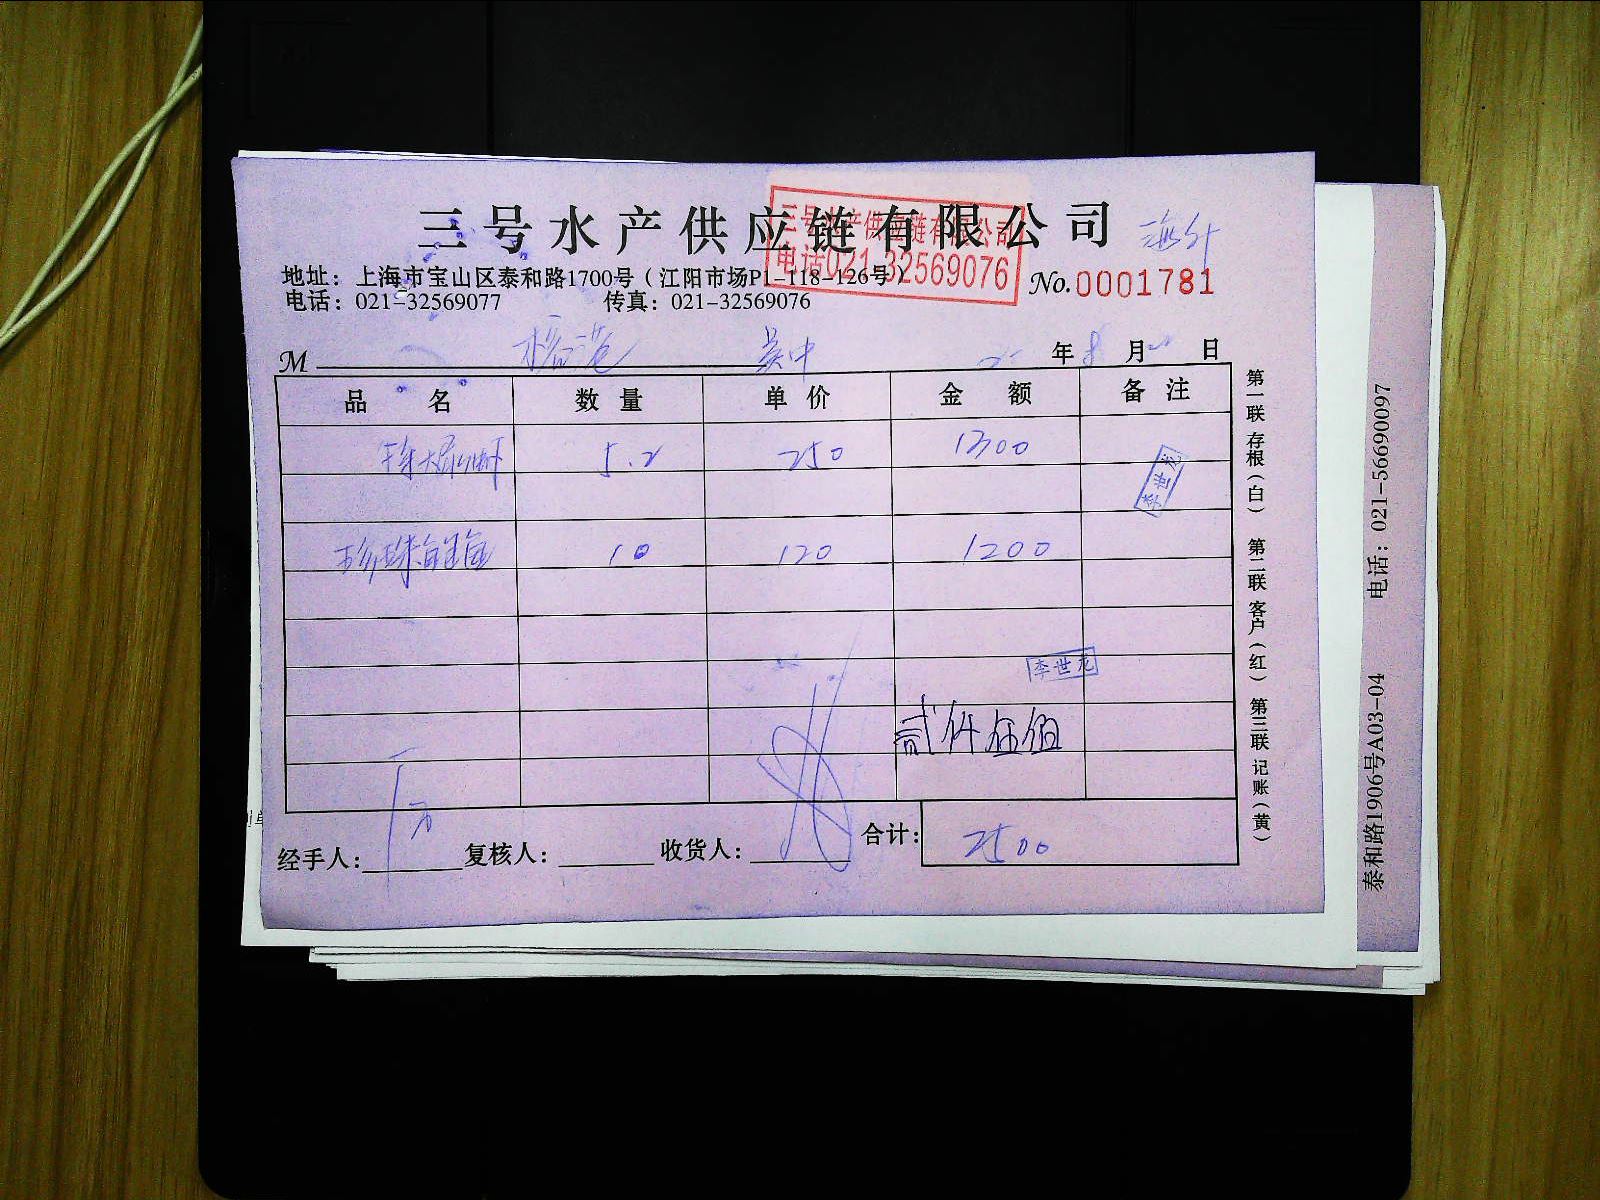 三号水产供应链有限公司
三号水产供应链有限公司
电话021-32569076
地址：上海市宝山区泰和路1700号（江阳市场P1-118-126号）
No.0001781
电话：021-32569077 传真：021-32569076
M 吴中 年 8 月 日
品名 数量 单价 金额 备注
5.2 250 1300
李世龙
珍珠 10 120 1200
李世龙
贰仟伍佰
经手人： 复核人： 收货人： 合计： 2500
第一联 存根（白） 第二联 客户（红） 第三联 记账（黄）
泰和路1906号A03-04 电话：021-56690097